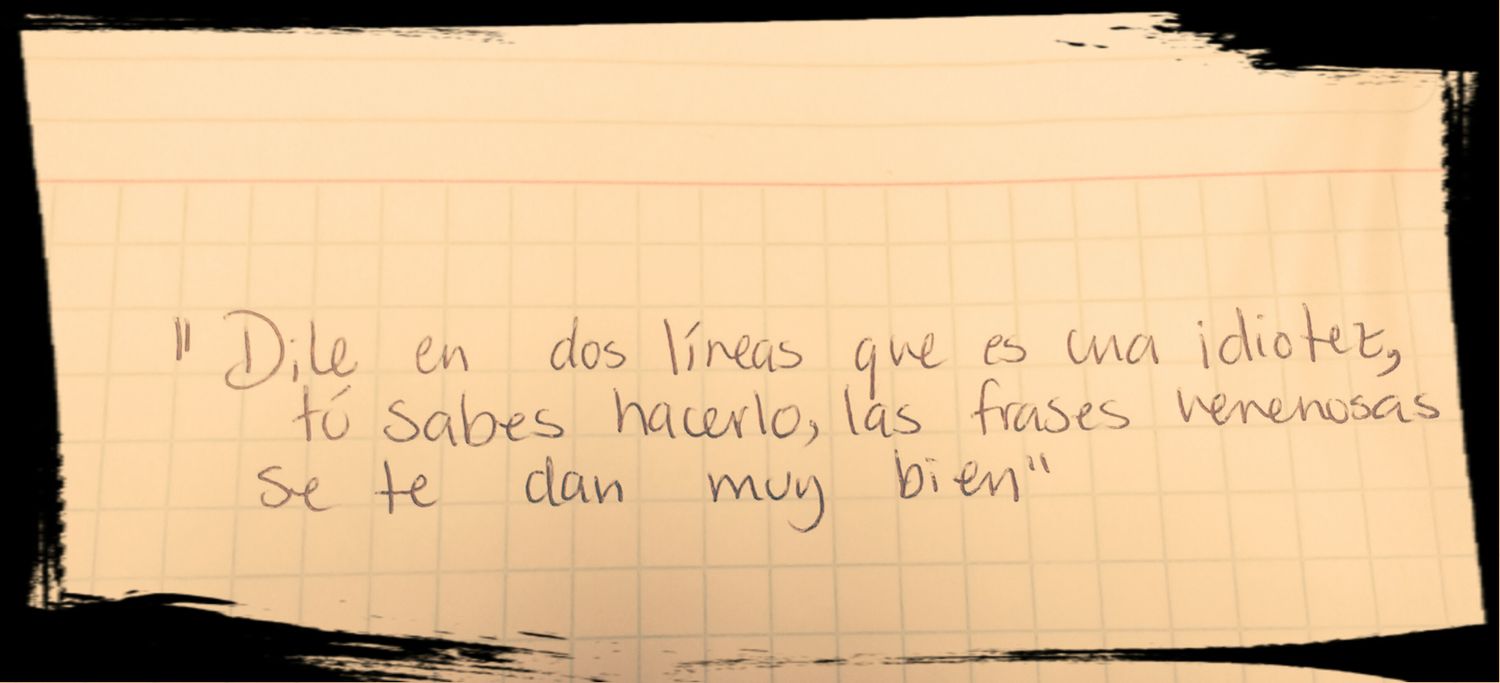 "Dile en dos líneas que es una idiotez,
tú sabes hacerlo, las frases venenosas
se te dan muy bien"